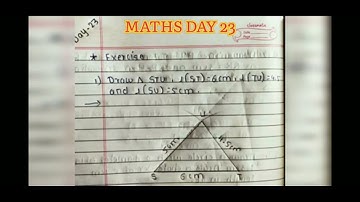 MATHS DAY 23
Day-23
* Exercise
1) Draw Δ STU, l(ST)=6cm, l(TU)=
and l(SU)=5cm.
→
U
5cm
4.5cm
S
6cm
T